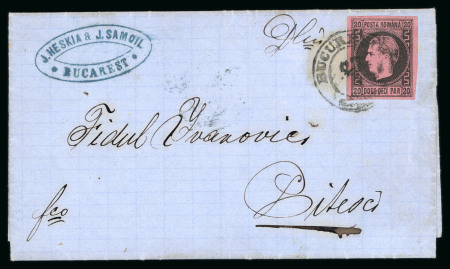 J. HESKIA & J. SAMOIL
BUCAREST
POSTA ROMANA
20 20
5 5
20 20
DOUE-DECI PAR
BUCUR
Fidul Yvanovici
fco
Pitesci